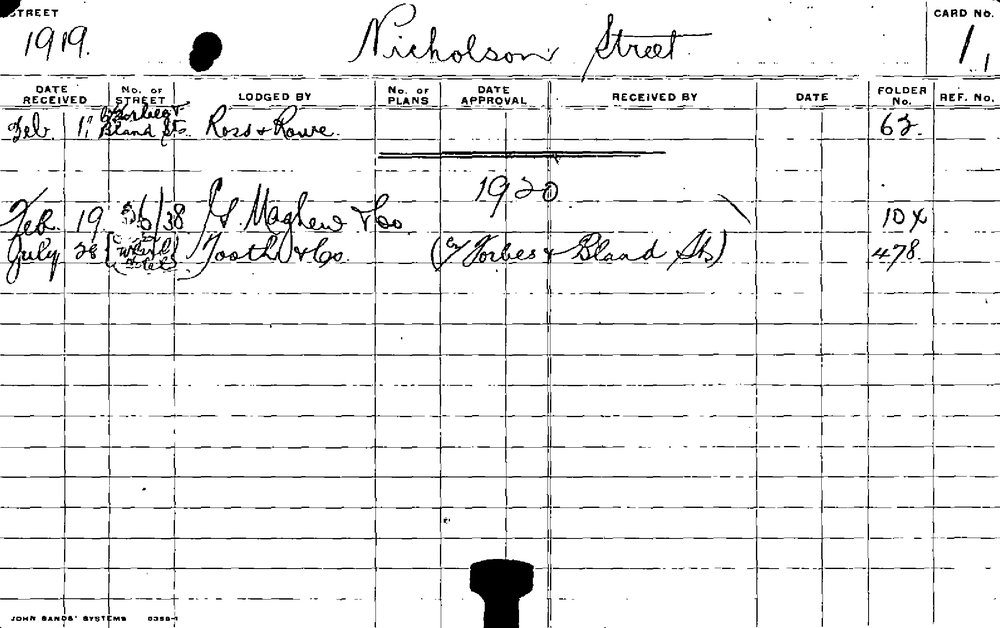 STREET
1919. Nicholson Street
CARD No.
1.
DATE RECEIVED No. OF STREET LODGED BY No. OF PLANS DATE APPROVAL RECEIVED BY DATE FOLDER No. REF. No.
Feb. 11 Forbes & Bland Sts. Ross & Rowe. 63.
1920
Feb. 19 36/38 Mayhew & Co. 104
July 28 Hotel Tooth & Co. (Cr Forbes & Bland Sts) 478
JOHN SANDS' SYSTEMS